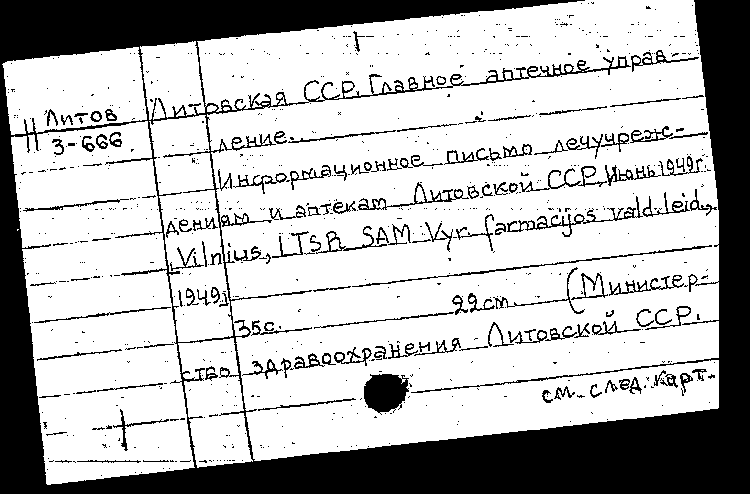 Литов
3-666
Литовская ССР. Главное аптечное управ-
ление.
Информационное письмо лечучреж-
дениям и аптекам Литовской ССР. Июнь 1949г.
Vilnius, LTSR SAM Vyr. farmacijos vald. leid.,
1949
35с. 22см. (Министер-
ство здравоохранения Литовской ССР.
см. след. карт.